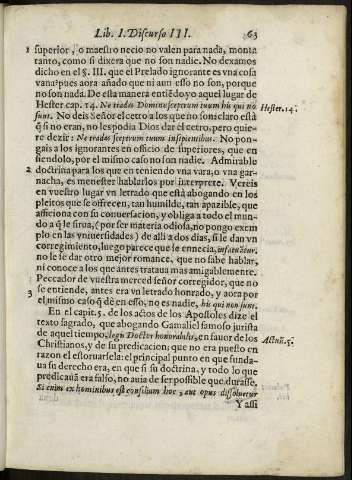 Lib. I. Discurso III. 63
1 superior, o maestro necio no valen para nada, monta
tanto, como si dixera que no son nadie. No dexamos
dicho en el §. III. que el Prelado ignorante es vna cosa
vana? pues aora añado que ni aun esso no son, porque
no son nada. De esta manera entiēdo yo aquel lugar de
Hester cap. 14. Ne tradas Domine sceptrum tuum his qui no
sunt. No deis Señor el cetro a los que no son: claro està
q̃ si no eran, no les podia Dios dar el cetro, pero quie-
re dezir: Ne tradas sceptrum tuum insipientibus. No pon-
gais a los ignorantes en officio de superiores, que en
siendolo, por el mismo caso no son nadie. Admirable
2 doctrina para los que en teniendo vna vara, o vna gar-
nacha, es menester hablarlos por interprete. Vereis
en vuestro lugar vn letrado que està abogando en los
pleitos que se offrecen, tan humilde, tan apazible, que
afficiona con su conuersacion, y obliga a todo el mun-
do a q̃ le sirua, (por ser materia odiosa, no pongo exem
plo en las vniuersidades) de alli a dos dias, si le dan vn
corregimiento, luego parece que se ennecia, infatuatur,
no le se dar otro mejor romance, que no sabe hablar,
ni conoce a los que antes trataua mas amigablemente.
Peccador de vuestra merced señor corregidor, que no
se entiende, antes era vn letrado honrado, y aora por
3 el mismo caso q̃ dè en esso, no es nadie, his qui non sunt.
En el capit. 5. de los actos de los Apostoles dize el
texto sagrado, que abogando Gamaliel famoso jurista
de aquel tiempo, legis Doctor honorabilis, en fauor de los
Christianos, y de su predicacion; que no era puesto en
razon el estoruarsela: el principal punto en que funda-
ua su derecho era, en que si su doctrina, y todo lo que
predicauā era falso, no auia de ser possible que durasse.
Si enim ex hominibus est consilium hoc, aut opus dissoluetur
Y assi
Hester. 14.
Actuũ. 5.